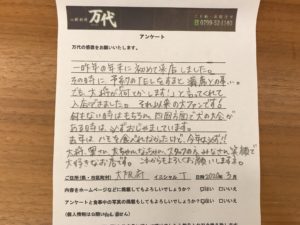 万代
ご予約・お問合せ
0799-52-1180
アンケート
万代の感想をお願いいたします。
一昨年の年末に初めて来店しました。
その時に、予約のTELしなすると、満席との事…
でも、大将が「何とかします!」と言ってくれて
入店できました。それ以来の大ファンです。
何もない時はもちろん、四国方面で犬の大会が
ある時は、必ずおじゃましています。
去年はハモを食べれなかったけど、今年は必ず!!
大将、奥さん、大ちゃん、スタッフの人、みなさん、笑顔で
大好きなお店です。これからもよろしくお願いしますよ。
ご住所(県・市区町村) 大阪府 イニシャル T 日時 2020年 3月
内容をホームページなどに掲載してもよろしいでしょうか? はい いいえ
アンケートと食事中の写真の掲載してもよろしいでしょうか? はい いいえ
(個人情報は公開いたしません)